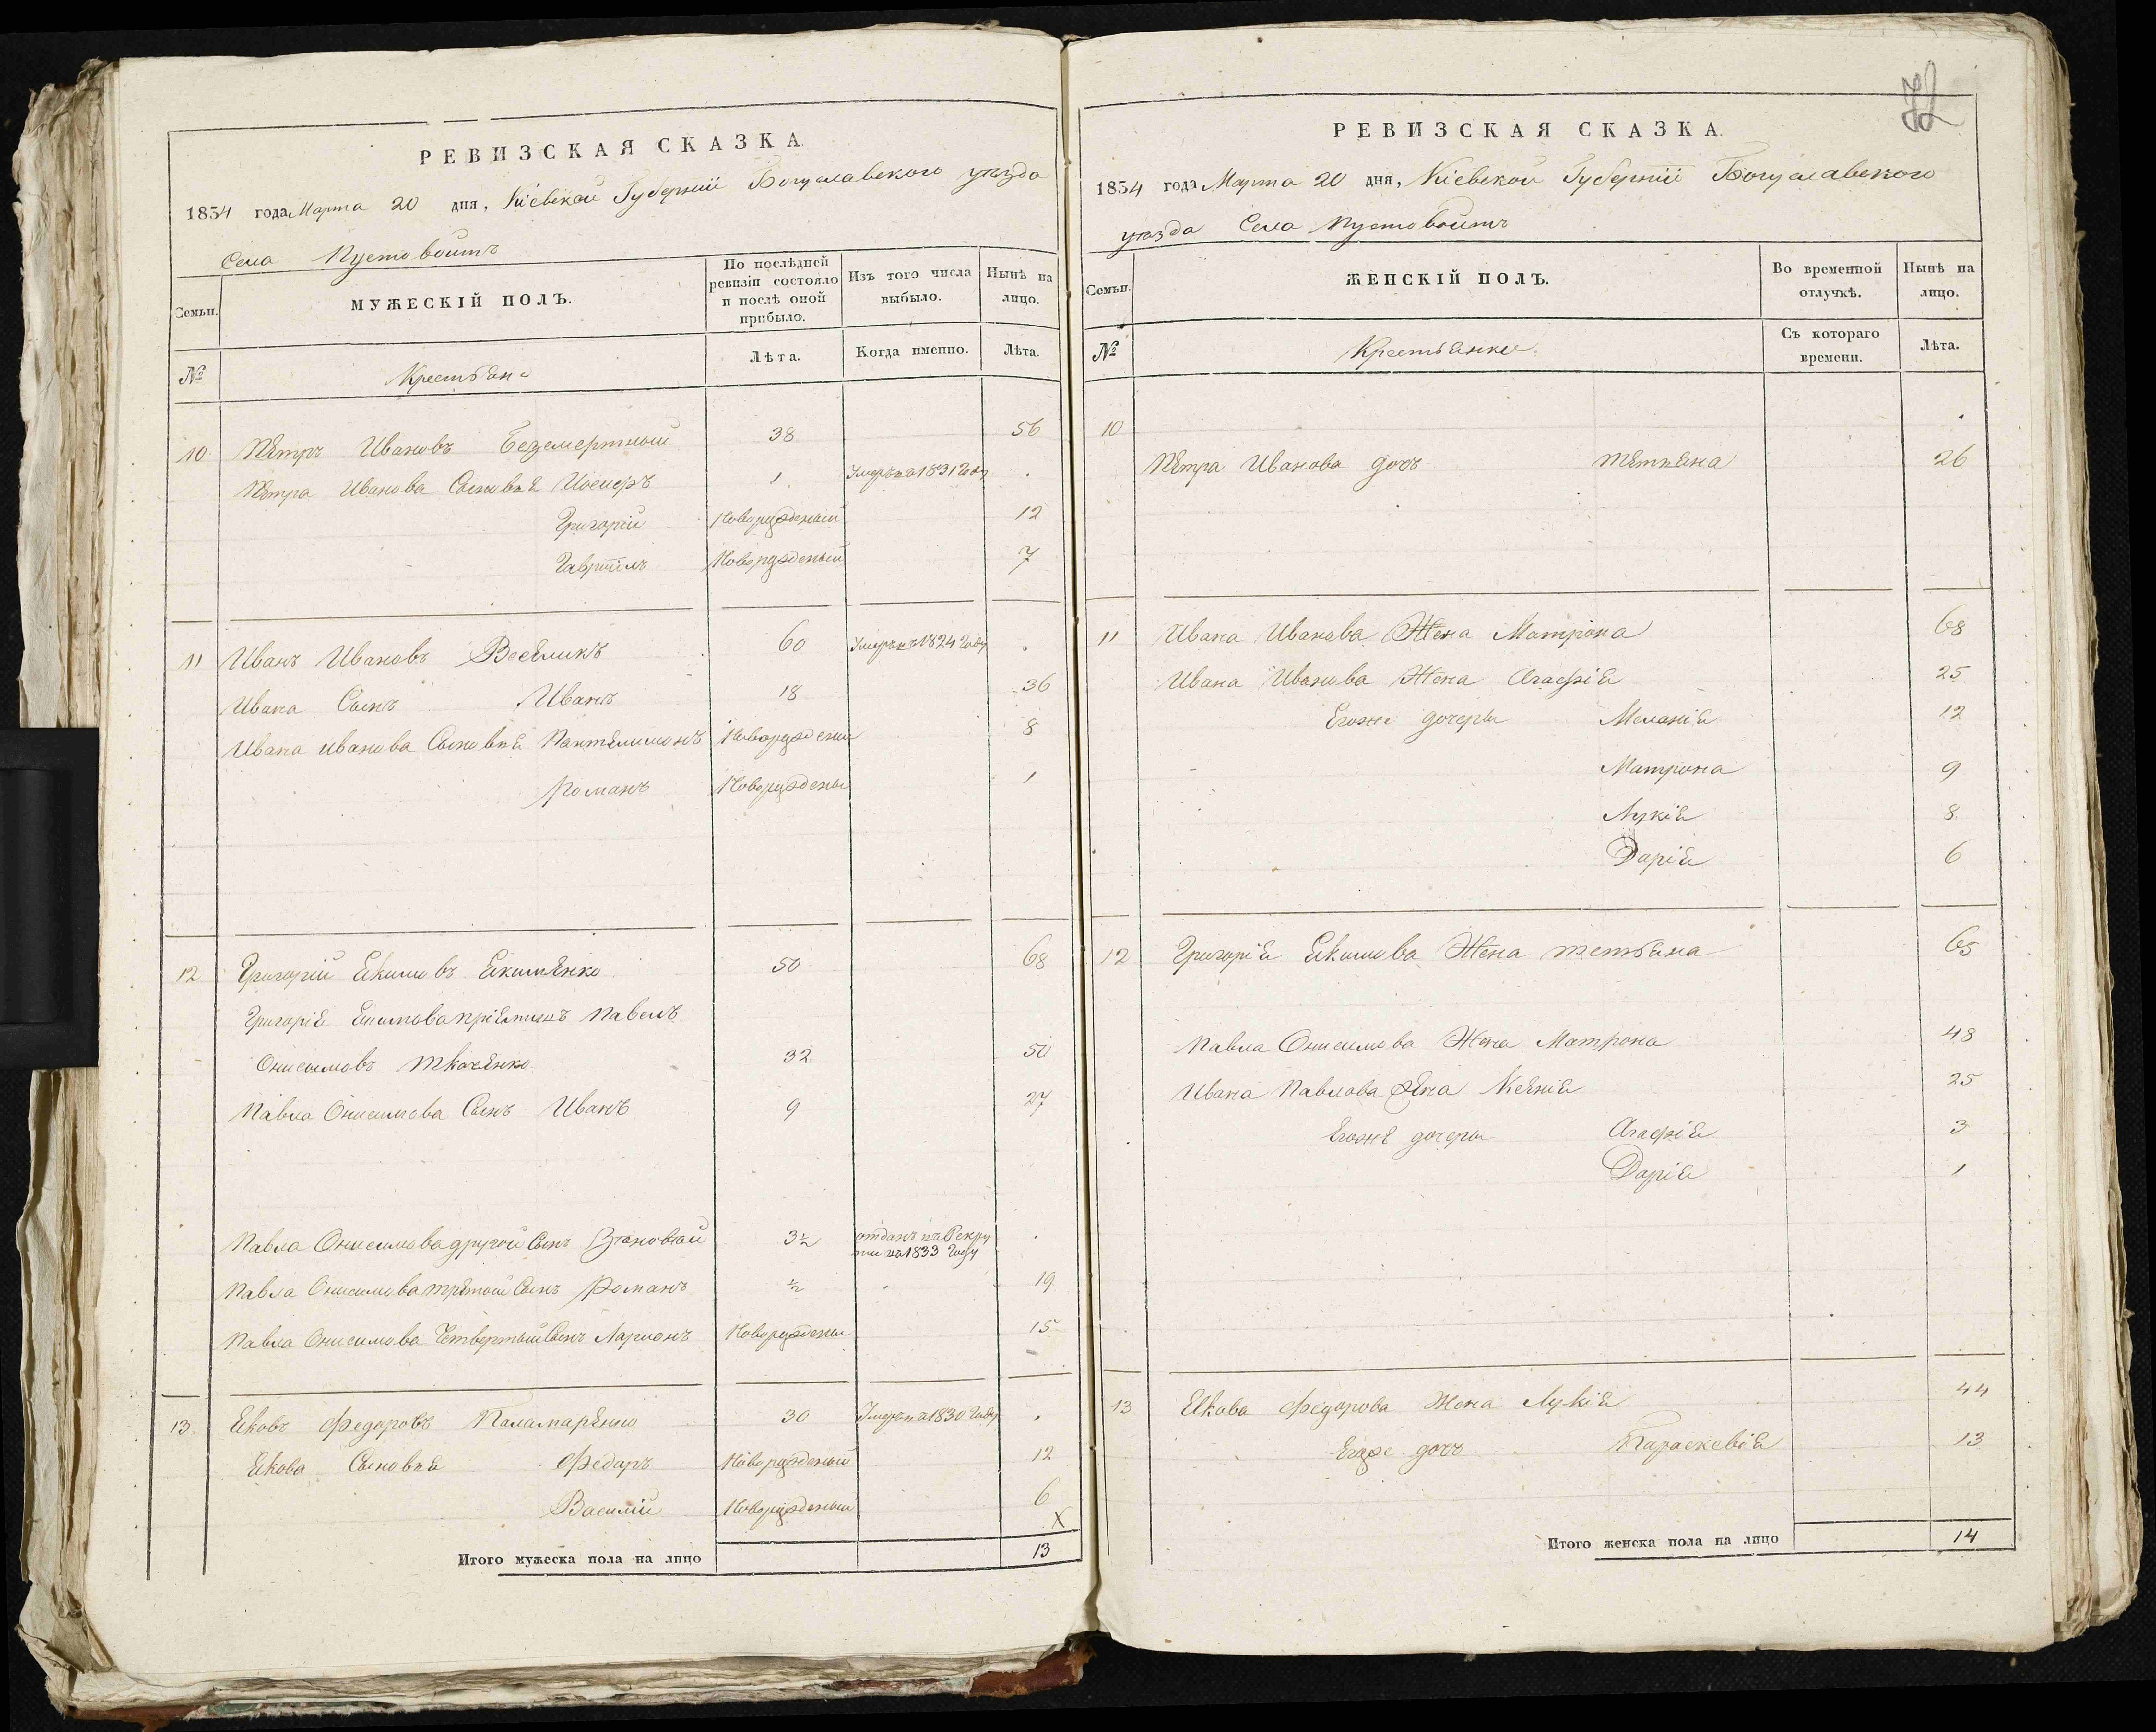 РЕВИЗСКАЯ СКАЗКА
1834 года Марта 20 дня, Кіевской Губерніи Богуславского уѣзда
Села Пустовойтъ
Семьи.
МУЖЕСКІЙ ПОЛЪ.
По послѣдней ревизіи состояло и послѣ оной прибыло.
Изъ того числа выбыло.
Нынѣ на лицо.
№
Крестьяне
Лѣта.
Когда именно.
Лѣта.
10 Пѣтръ Ивановъ Безсмертной 38 56
Пѣтра Иванова Сыновья Иосифъ 1 Умеръ въ 1831 Году .
Григорій Новорожденый 12
Гавріилъ Новорожденый 7
11 Иванъ Ивановъ 60 Умеръ въ 1824 Году .
Ивана Сынъ Иванъ 18 36
Ивана иванова Сыновья Пантелимонъ Новорождены 8
Романъ Новорождены 1
12 Григорій Якимовъ Якименко 50 68
Григорія Якимова пріемышъ Павелъ
Онисимовъ Ткаченко 32 50
Павла Онисимова Сынъ Иванъ 9 27
Павла Онисимова другой Сынъ 3½ отданъ въ Рекру
ты въ 1833 Году .
Павла Онисимова третой Сынъ Романъ ½ 19
Павла Онисимова Четвертый Сынъ Ларионъ Новорождены 15
13 Яковъ Федоровъ Паламаренко 30 Умеръ въ 1830 Году .
Якова Сыновья Федаръ Новорожденый 12
Василій Новорожденый 6
X
Итого мужеска пола на лицо 13
72
РЕВИЗСКАЯ СКАЗКА.
1834 года Марта 20 дня, Кіевской Губерніи Богуславского
уѣзда Села Пустовойтъ
Семьи.
ЖЕНСКІЙ ПОЛЪ.
Во временной отлучкѣ.
Нынѣ на лицо.
№
Крестьянки
Съ котораго времени.
Лѣта.
10
Пѣтра Иванова дочь Тѣтяна 26
11 Ивана Иванова Жена Матрона 68
Ивана Иванова Жена Агафія 25
Егоже дочеры Меланія 12
Матрона 9
Лукія 8
Дарія 6
12 Григорія Якимова Жена Тетьяна 65
Павла Онисимова Жена Матрона 48
Ивана Павлова Жена Ксенія 25
Егоже дочеры Агафія 3
Дарія 1
13 Якова Федорова Жена Лукія 44
Егоже дочь Параскевія 13
Итого женска пола на лицо 14